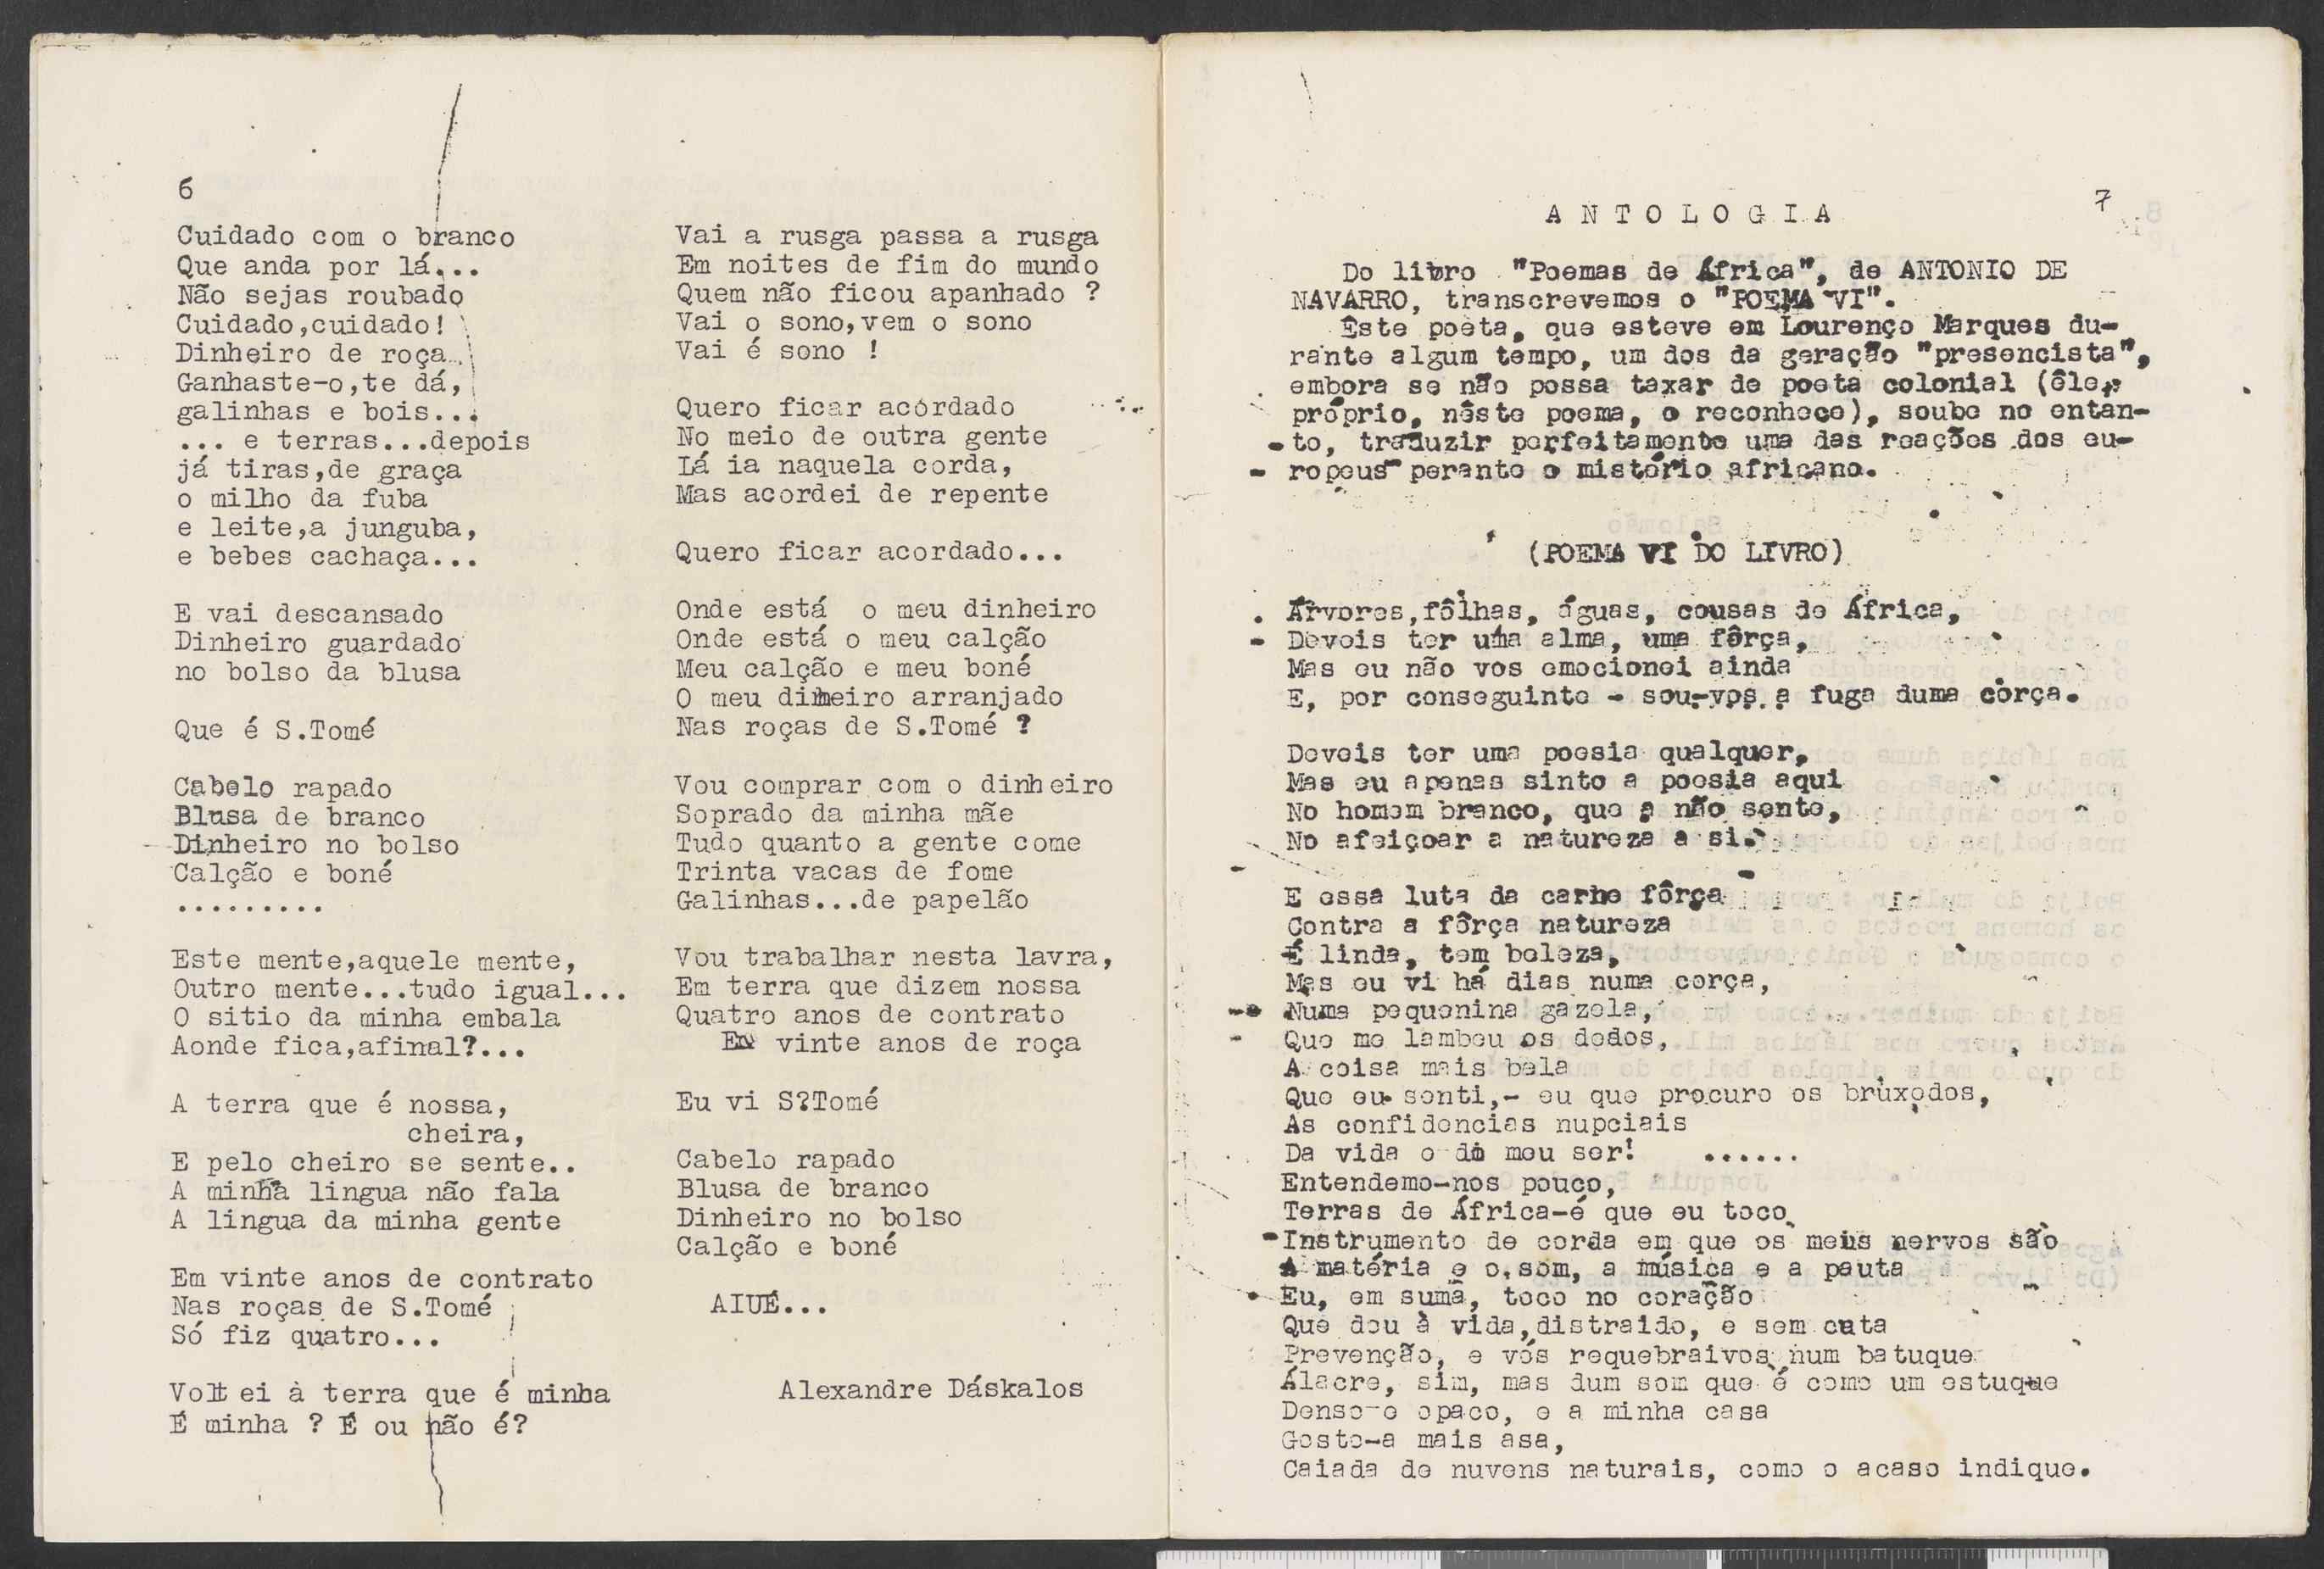 6
Cuidado com o branco
Que anda por lá...
Não sejas roubado
Cuidado,cuidado!
Dinheiro de roça
Ganhaste-o,te dá,
galinhas e bois...
... e terras...depois
já tiras,de graça
o milho da fuba
e leite,a junguba,
e bebes cachaça...
E vai descansado
Dinheiro guardado
no bolso da blusa
Que é S.Tomé
Cabelo rapado
Blusa de branco
Dinheiro no bolso
Calção e boné
.........
Este mente,aquele mente,
Outro mente...tudo igual...
O sitio da minha embala
Aonde fica,afinal?...
A terra que é nossa,
cheira,
E pelo cheiro se sente..
A minha lingua não fala
A lingua da minha gente
Em vinte anos de contrato
Nas roças de S.Tomé
Só fiz quatro...
Voltei à terra que é minha
É minha ? É ou não é?
Vai a rusga passa a rusga
Em noites de fim do mundo
Quem não ficou apanhado ?
Vai o sono,vem o sono
Vai é sono !
Quero ficar acórdado
No meio de outra gente
Lá ia naquela corda,
Mas acordei de repente
Quero ficar acordado...
Onde está o meu dinheiro
Onde está o meu calção
Meu calção e meu boné
O meu dinheiro arranjado
Nas roças de S.Tomé ?
Vou comprar com o dinheiro
Soprado da minha mãe
Tudo quanto a gente come
Trinta vacas de fome
Galinhas...de papelão
Vou trabalhar nesta lavra,
Em terra que dizem nossa
Quatro anos de contrato
Em vinte anos de roça
Eu vi S?Tomé
Cabelo rapado
Blusa de branco
Dinheiro no bolso
Calção e boné
AIUÉ...
Alexandre Dáskalos
7
A N T O L O G I A
Do livro "Poemas de África", de ANTONIO DE
NAVARRO, transcrevemos o "POEMA VI".
Êste poeta, que esteve em Lourenço Marques du-
rante algum tempo, um dos da geração "presencista",
embora se não possa taxar de poeta colonial (êle,
próprio, nêste poema, o reconhece), soube no entan-
to, traduzir perfeitamente uma das reações dos eu-
ropeus perante o mistério africano.
(POEMA VI DO LIVRO)
Árvores,fôlhas, águas, cousas de África,
Deveis ter uma alma, uma fôrça,
Mas eu não vos emocionei ainda
E, por conseguinte - sou-vos a fuga duma côrça.
Deveis ter uma poesia qualquer,
Mas eu apenas sinto a poesia aqui
No homem branco, que a não sente,
No afeiçoar a natureza a si.
E essa luta da carne fôrça
Contra a fôrça natureza
É linda, tem beleza,
Mas eu vi há dias numa corça,
Numa pequenina gazela,
Que me lambeu os dedos,
A coisa mais bela
Que eu senti,- eu que procuro os bruxedos,
As confidencias nupciais
Da vida e do meu ser! ......
Entendemo-nos pouco,
Terras de África-é que eu toco
Instrumento de corda em que os meus nervos são
A matéria e o som, a música e a pauta
Eu, em suma, toco no coração
Que dou à vida,distraido, e sem cuta
Prevenção, e vós requebraivos num batuque
Álacre, sim, mas dum som que é como um estuque
Denso-e opaco, e a minha casa
Gosto-a mais asa,
Caiada de nuvens naturais, como o acaso indique.